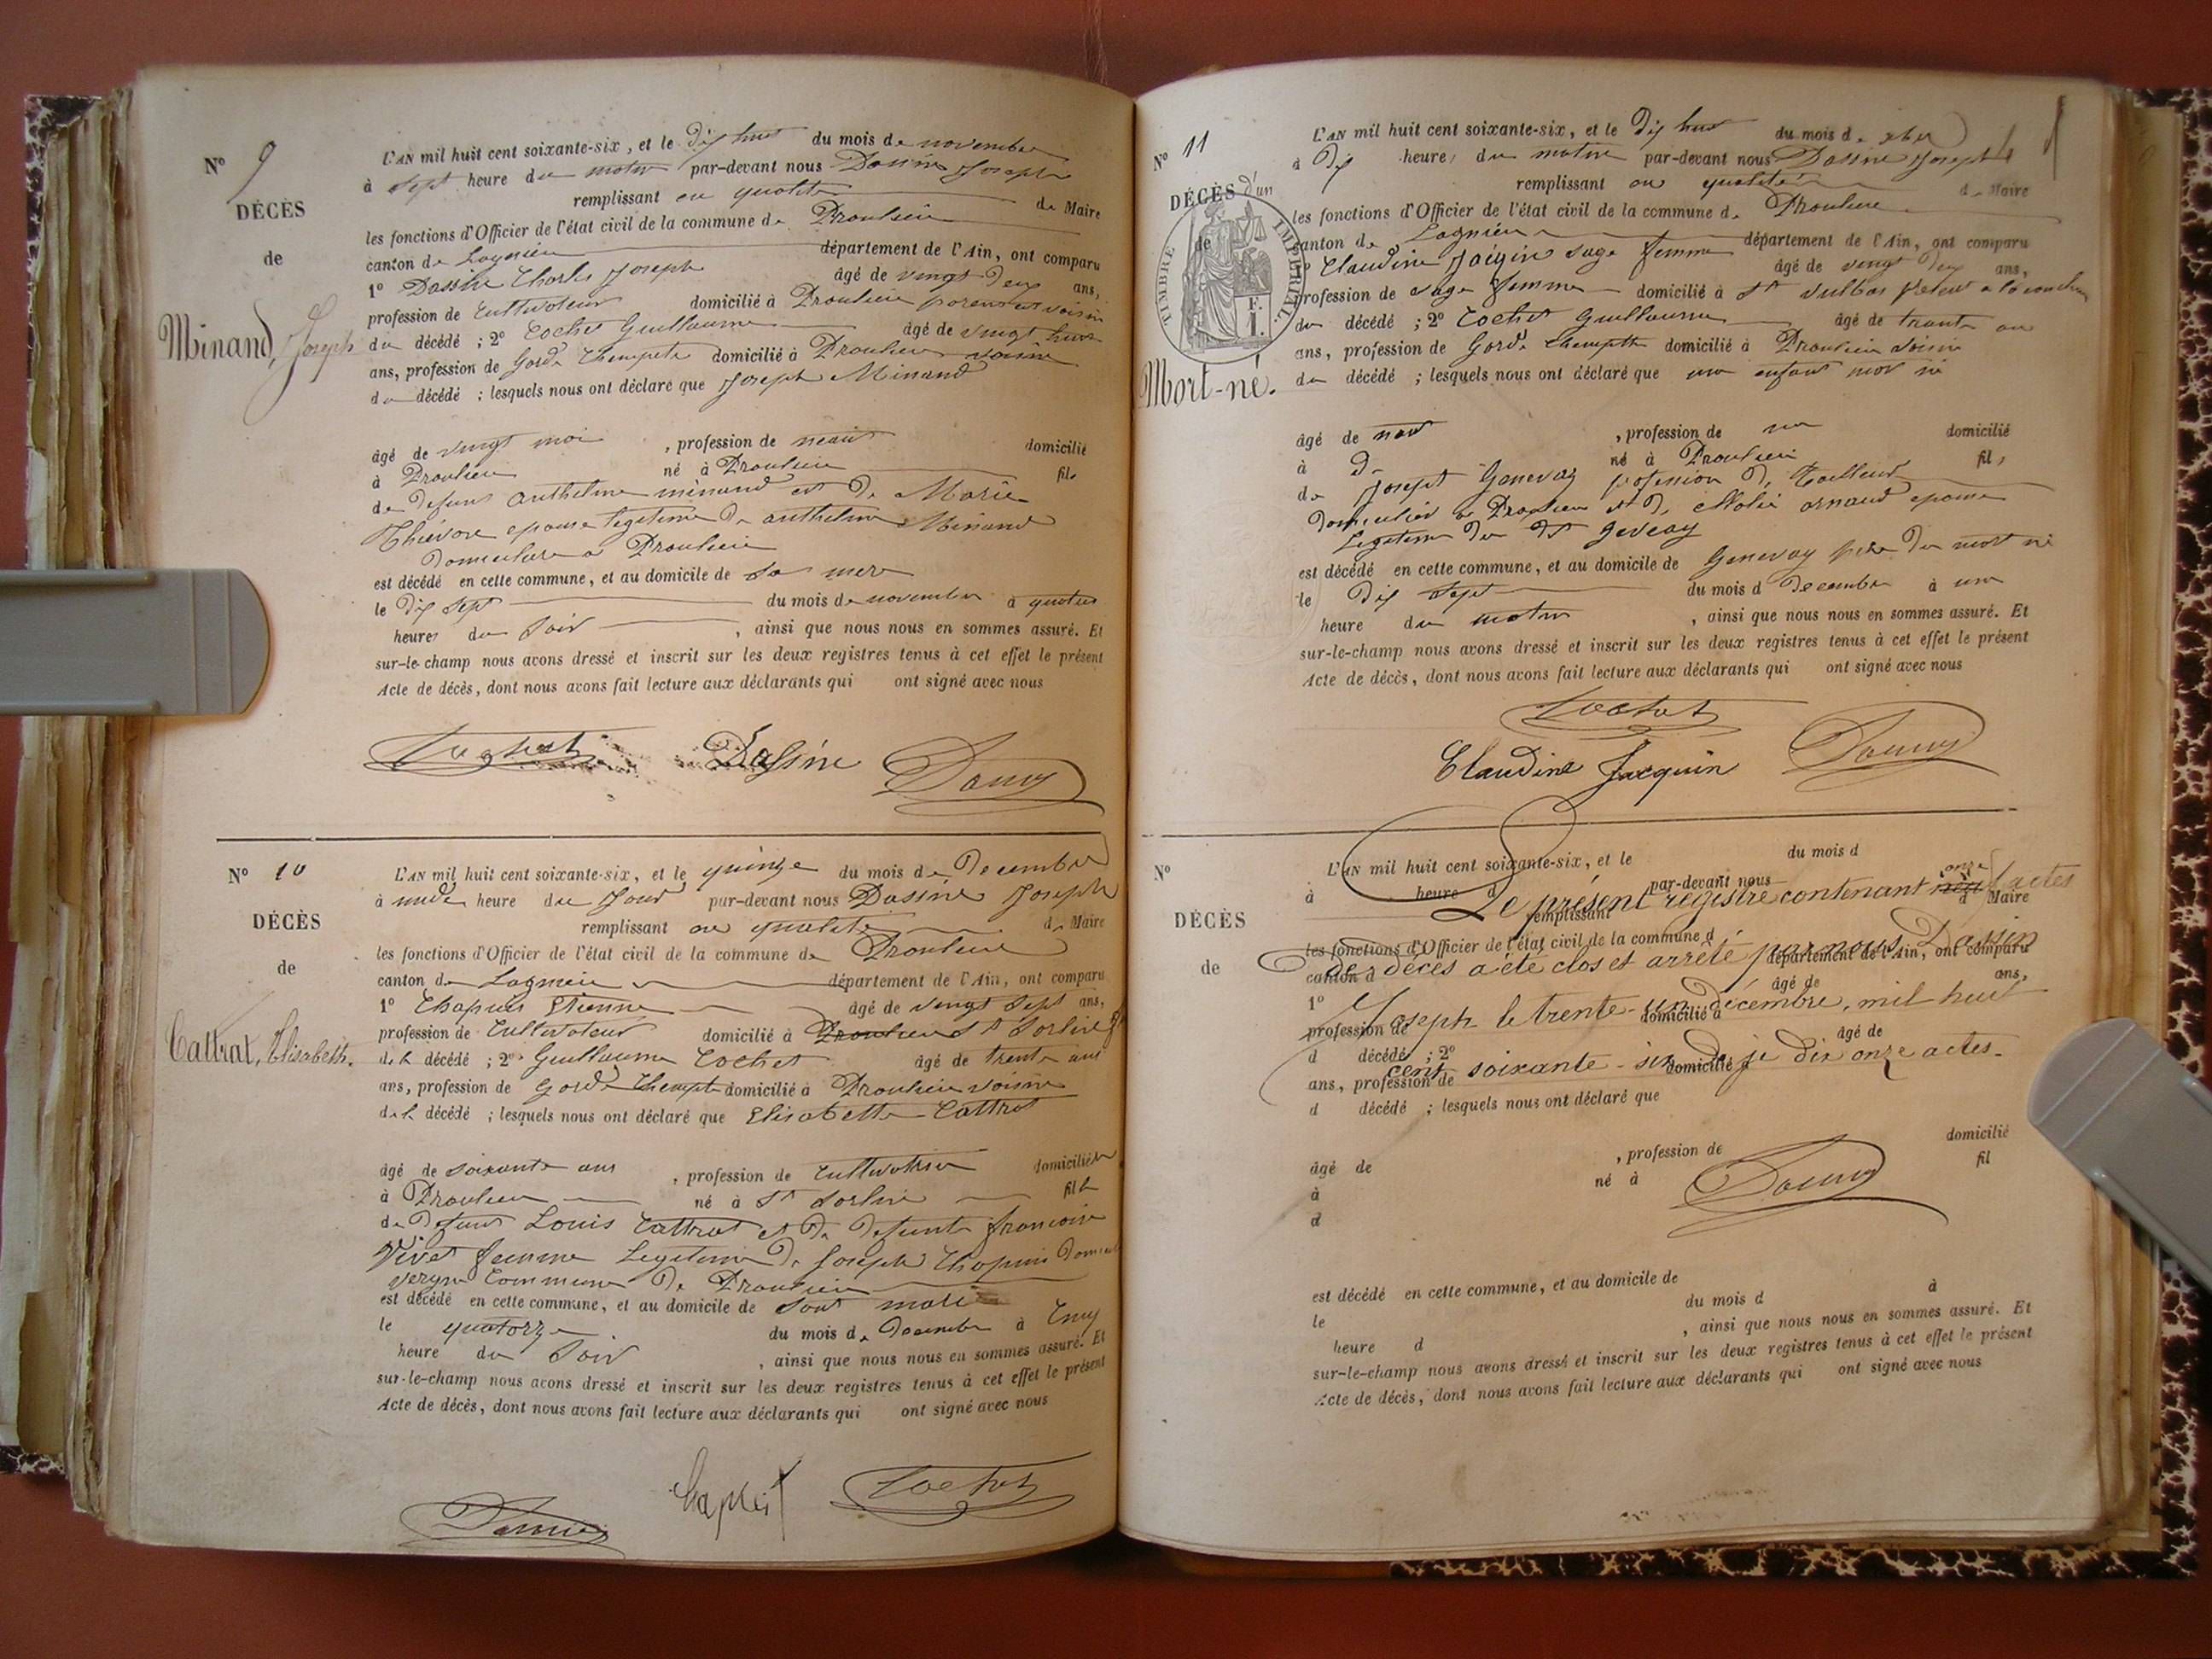 N° 9
DÉCÈS
de
Minand, Joseph
L'AN mil huit cent soixante-six, et le dix huit du mois de novembre
à sept heure du matin par-devant nous Dassin Joseph
remplissant en qualité de Maire
les fonctions d'Officier de l'état civil de la commune de Proulieu
canton de Lagnieu département de l'Ain, ont comparu
1° Dassin Charles Joseph âgé de vingt deux ans,
profession de Cultivateur domicilié à Proulieu voisin
du décédé ; 2° Cochet Guillaume âgé de vingt
ans, profession de Garde Champetr domicilié à Proulieu voisin
du décédé ; lesquels nous ont déclaré que Joseph Minand
âgé de vingt moi , profession de neant domicilié
à Proulieu né à Proulieu fils
de defunt anthelme minand et de Marie
Thievon epouse legitime de anthelme Minand
domiciliée a Proulieu
est décédé en cette commune, et au domicile de sa mere
le dix sept du mois de novembre à quatre
heures du soir , ainsi que nous nous en sommes assuré. Et
sur-le-champ nous avons dressé et inscrit sur les deux registres tenus à cet effet le présent
Acte de décès, dont nous avons fait lecture aux déclarants qui ont signé avec nous
Cochet Dassine
N° 10
DÉCÈS
de
Cattrat, Elisabeth.
L'AN mil huit cent soixante-six, et le quinze du mois de Decembre
à heure du Jour par-devant nous Dassine Joseph
remplissant en qualité de Maire
les fonctions d'Officier de l'état civil de la commune de Proulieu
canton de Lagnieu département de l'Ain, ont comparu
1° Chapuis Etienne âgé de vingt sept ans,
profession de Cultivateur domicilié à Proulieu St Sorlin
de la décédé ; 2° Guillaume Cochet âgé de trente ans
ans, profession de Garde Champet domicilié à Proulieu voisin
de la décédé ; lesquels nous ont déclaré que Elisabette Cattrat
âgé de soixante ans , profession de Cultivatrice domiciliée
à Proulieu né à St Sorlin fille
de defunt Louis Cattrat et de defunte francoise
Vivet femme Legitime de Joseph Chapuis
Commune de Proulieu
est décédé en cette commune, et au domicile de sont mari
le quatorze du mois de Decembre à Cinq
heure du soir , ainsi que nous nous en sommes assuré. Et
sur-le-champ nous avons dressé et inscrit sur les deux registres tenus à cet effet le présent
Acte de décès, dont nous avons fait lecture aux déclarants qui ont signé avec nous
Cochet
N° 11
DÉCÈS d'un
de
TIMBRE IMPERIAL
F.
1.
Mort-né.
L'AN mil huit cent soixante-six, et le dix huit du mois de xber
à dix heure du matin par-devant nous Dassine Joseph
remplissant en qualité de Maire
les fonctions d'Officier de l'état civil de la commune de Proulieu
canton de Lagnieu département de l'Ain, ont comparu
1° Claudine Jaiqin sage femme âgé de vingt deux ans,
profession de sage femme domicilié à St Vulbas
du décédé ; 2° Cochet Guillaume âgé de trante an
ans, profession de Garde Champett domicilié à Proulieu voisin
du décédé ; lesquels nous ont déclaré que un enfant mor né
âgé de , profession de domicilié
à né à Proulieu fils
de Joseph Genevay profession de Tailleur
domicilier a Proulieu et de arnaud epouse
Legitime du dt
est décédé en cette commune, et au domicile de Genevay père du mort né
le dix sept du mois d Decembre à une
heure du matin , ainsi que nous nous en sommes assuré. Et
sur-le-champ nous avons dressé et inscrit sur les deux registres tenus à cet effet le présent
Acte de décès, dont nous avons fait lecture aux déclarants qui ont signé avec nous
Cochet
Claudine Jacquin
N°
DÉCÈS
de
L'AN mil huit cent soixante-six, et le du mois d
à heure d par-devant nous
onze
Le présent registre contenant actes
remplissant d Maire
les fonctions d'Officier de l'état civil de la commune d
de décès a été clos et arrêté par nous Dassin
canton d département de l'Ain, ont comparu
1° âgé de ans,
Joseph le trente-un décembre, mil huit
profession de domicilié à
d décédé ; 2° âgé de
cent soixante-six de je dix onze actes.
ans, profession de domicilié à
d décédé ; lesquels nous ont déclaré que
âgé de , profession de domicilié
à né à fil
d
est décédé en cette commune, et au domicile de
le du mois d à
heure d , ainsi que nous nous en sommes assuré. Et
sur-le-champ nous avons dressé et inscrit sur les deux registres tenus à cet effet le présent
Acte de décès, dont nous avons fait lecture aux déclarants qui ont signé avec nous